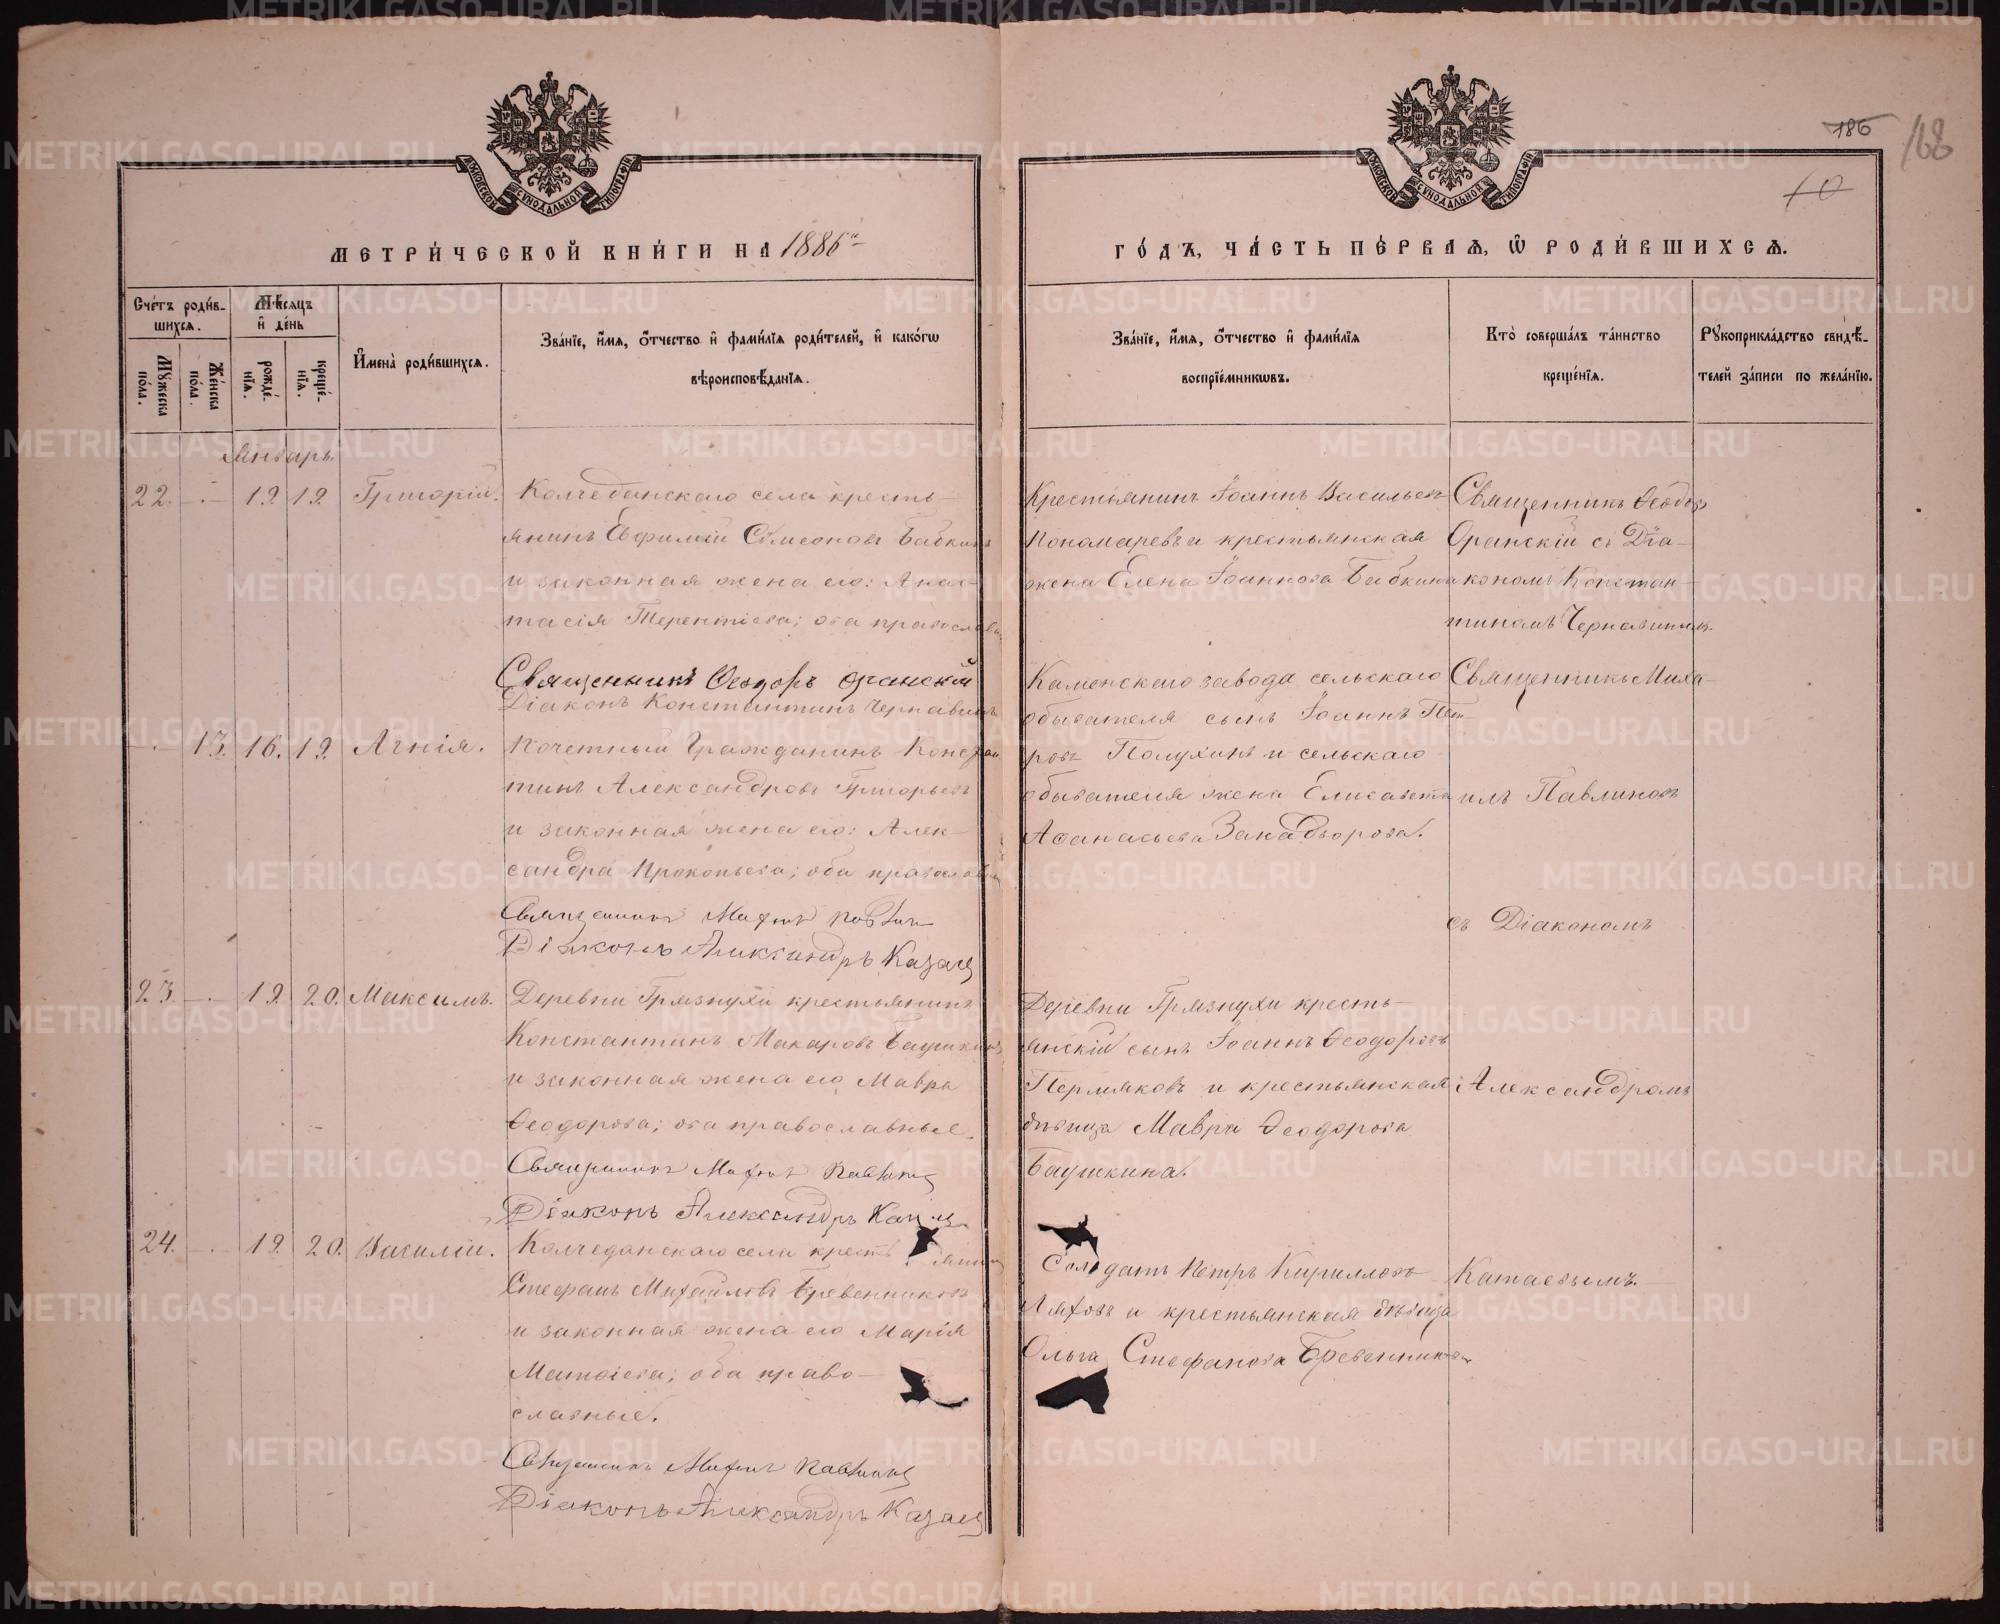 186
168
10
МОСКОВСКОЙ СѴНОДАЛЬНОЙ ТИПОГРАФІИ
МОСКОВСКОЙ СѴНОДАЛЬНОЙ ТИПОГРАФІИ
МЕТРИ́ЧЕСКОЙ КНИ́ГИ НА 1886й
ГО́ДЪ, ЧА́СТЬ ПЕ́РВАѦ, Ѽ РОДИ́ВШИХСѦ.
Сче́тъ роди́в-
шихсѧ.
Мꙋжеска по́ла.
Же́нска по́ла.
Мѣ́сѧцъ
и҆ де́нь
рожде́-
нїѧ.
креще́-
нїѧ.
И҆мена̀ роди́вшихсѧ.
Зва́нїе, и҆́мѧ, ѻ҆́тчество и҆ фами́лїѧ роди́телей, и҆ како́гѡ
вѣроисповѣ́данїѧ.
Зва́нїе, и҆́мѧ, ѻ҆́тчество и҆ фами́лїѧ
воспрїе́мникѡвъ.
Кто̀ соверша́лъ та́инство
креще́нїѧ.
Рꙋкоприкла́дство свидѣ́-
телей за́писи по жела́нїю.
Январь.
22. -.- 19. 19. Григорій.
Колчеданскаго села кресть-
янинъ Евфимій Симеоновъ Бабкинъ
и законная жена его: Анас-
тасія Терентіева; оба православн.
Священникъ Ѳеодоръ Оранскій
Діаконъ Константинъ Чернавинъ
Крестьянинъ Іоаннъ Васильевъ
Пономаревъ и крестьянская
жена Елена Іоаннова Бабкина
Священникъ Ѳеодоръ
Оранскій съ Діа-
кономъ Констан-
тиномъ Чернавинымъ.
-.- 13. 16. 19. Агнія.
Почетный Гражданинъ Констан
тинъ Александровъ Григорьевъ
и законная жена его: Алек-
сандра Прокопьева; оба православн
Священникъ
Діаконъ Александръ
Каменскаго завода сельскаго
обывателя сынъ Іоаннъ Пет-
ровъ Полухинъ и сельскаго
обывателя жена Елисавета
Аѳанасьева Занадворова.
Священникъ Миха-
илъ Павлиновъ
съ Діакономъ
23. -.- 19. 20. Максимъ.
Деревни Грязнухи крестьянинъ
Константинъ Макаровъ Баушкинъ
и законная жена его Мавра
Ѳеодорова; оба православные.
Священникъ
Діаконъ Александръ
Деревни Грязнухи кресть-
янскій сынъ Іоаннъ Ѳеодоровъ
Пермяковъ и крестьянская
дѣвица Мавра Ѳеодорова
Баушкина.
Александромъ
24. -.- 19. 20. Василій.
Колчеданскаго села крестьянинъ
Стефанъ Михайловъ Бревенниковъ
и законная жена его Марія
Матѳіева; оба право-
славные.
Священникъ
Діаконъ Александръ
Солдатъ Петръ Кирилловъ
Ляховъ и крестьянская дѣвица
Ольга Стефанова Бревенникова
Катаевымъ.